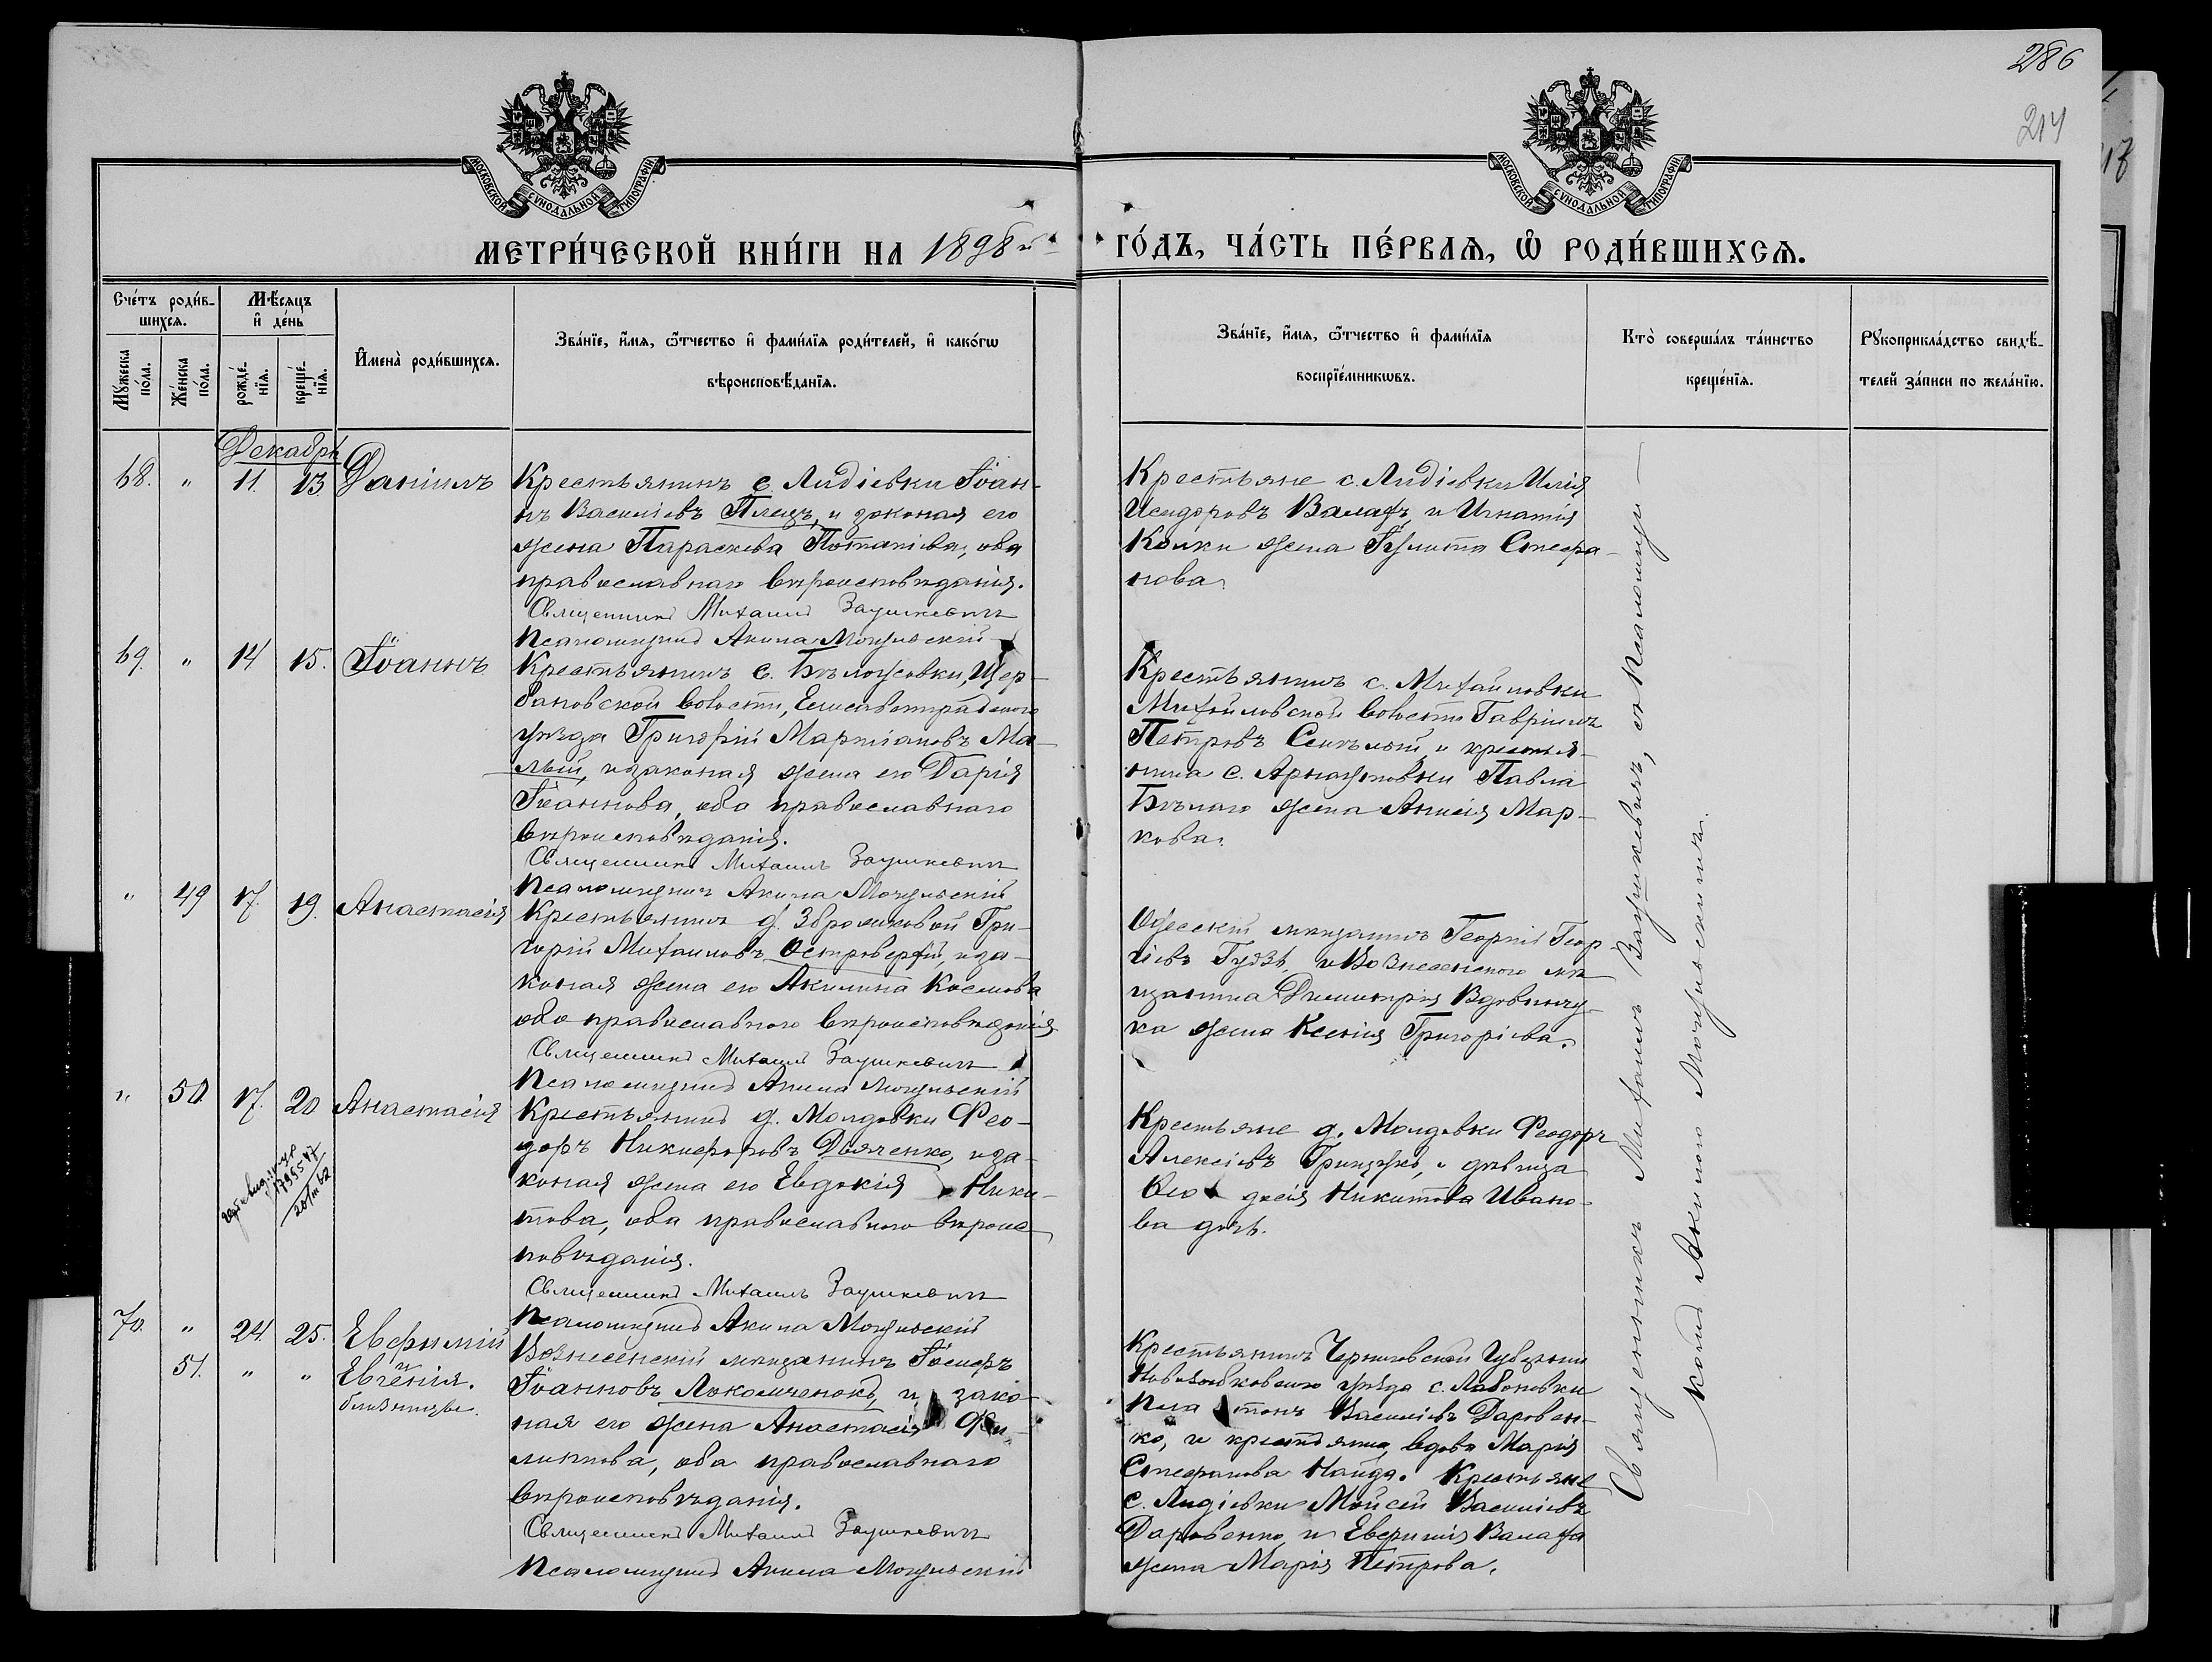 286
214
МОСКОВСКОЙ СѴНОДАЛЬНОЙ ТИПОГРАФІИ
МОСКОВСКОЙ СѴНОДАЛЬНОЙ ТИПОГРАФІИ
МЕТРИ́ЧЕСКОЙ КНИ́ГИ НА 1898й
ГО́ДЪ, ЧА́СТЬ ПЕ́РВАѦ, Ѡ҆ РОДИ́ВШИХСѦ.
Сче́тъ роди́в-
шихсѧ.
Мѣ́сѧцъ
и҆ де́нь
Мꙋ́жеска
по́ла.
Же́нска
по́ла.
рожде́-
нїѧ.
креще́-
нїѧ.
И҆мена̀ роди́вшихсѧ.
Зва́нїе, и҆́мѧ, ѻ҆́тчество и҆ фами́лїѧ роди́телей, и҆ како́гѡ
вѣроисповѣ́данїѧ.
Зва́нїе, и҆́мѧ, ѻ҆́тчество и҆ фами́лїѧ
воспрїе́мникѡвъ.
Кто̀ соверша́лъ та́инство
креще́нїѧ.
Рꙋкоприкла́дство свидѣ́-
телей за́писи по жела́нїю.
Декабрь
68. " 11. 13. Даніилъ
Крестьянинъ с. Лидіевки Іоан-
нъ Василіевъ Плецъ, и законая его
жена Параскева Потапіева, оба
православнаго вѣроисповѣданія.
Священникъ Михаилъ Заушкевичъ
Псаломщикъ Акила Могульскій
Крестьяне с. Лидіевки Илія
Исидоровъ Валахъ, и Игнатія
Колки жена Іулита Стефа-
нова.
69. " 14 15. Іоаннъ
Крестьянинъ с. Бѣлоусовки, Щер-
бановской волости, Елисаветградскаго
уѣзда Григорій Мартіановъ Ма-
лый, и законая жена его Дарія
Іоаннова, оба православнаго
вѣроисповѣданія.
Священникъ Михаилъ Заушкевичъ
Псаломщикъ Акила Могульскій
Крестьянинъ с. Михайловки
Михайловской волости Гавріилъ
Петровъ и крестья-
нина с. Арнаутовки Павла
Бѣлаго жена Анисія Мар-
кова.
" 49 17. 19. Анастасія
Крестьянинъ д. Збрашковой Гри-
горій Михаиловъ Островерхій, и за-
коная жена его Акилина Космова
оба православнаго вѣроисповѣданія
Священникъ Михаилъ Заушкевичъ
Псаломщикъ Акила Могульскій
Одесскій мѣщанинъ Георгій Геор-
гіевъ Гудзь, и Вознесенского мѣ-
щанина Димитрія Вдовичу-
ка жена Ксенія Григоріева.
" 50 17. 20 Анастасія
Крестьянинъ д. Молдовки Фео-
доръ Никифоровъ Дьяченко, и за-
коная жена его Евдокія Ники-
това, оба православного вѣроис-
повѣданія.
Священникъ Михаилъ Заушкевичъ
Псаломщикъ Акила Могульскій
Крестьяне д. Молдовки Феодоръ
Алексіевъ Грицу́жко, и дѣвица
Ѳео досія Никитова Ивано-
ва дочь.
70. " 24. 25. Евфимій
51. " " и
Евгенія.
близницы.
Вознесенскій мѣщанинъ Іосифъ
Іоанновъ Локомченокъ, и зако-
ная его жена Анастасія Фи-
липпова, оба православнаго
вѣроисповѣданія.
Священникъ Михаилъ Заушкевичъ
Псаломщикъ Акила Могульскій
Крестьянинъ Черниговской Губерніи
Новозыбковского уѣзда с. Лобановки
Пла тонъ Василіевъ Даровен-
ко, и крестьянка, вдова Марія
Стефанова Найда. Крестьяне
с. Лидіевки Мойсей Василіевъ
Даровенко, и Евфимія Валаха
жена Марія Петрова.
Священникъ Михаилъ Заушкевичъ, съ Псаломщи-
комъ Акилою Могульскимъ.